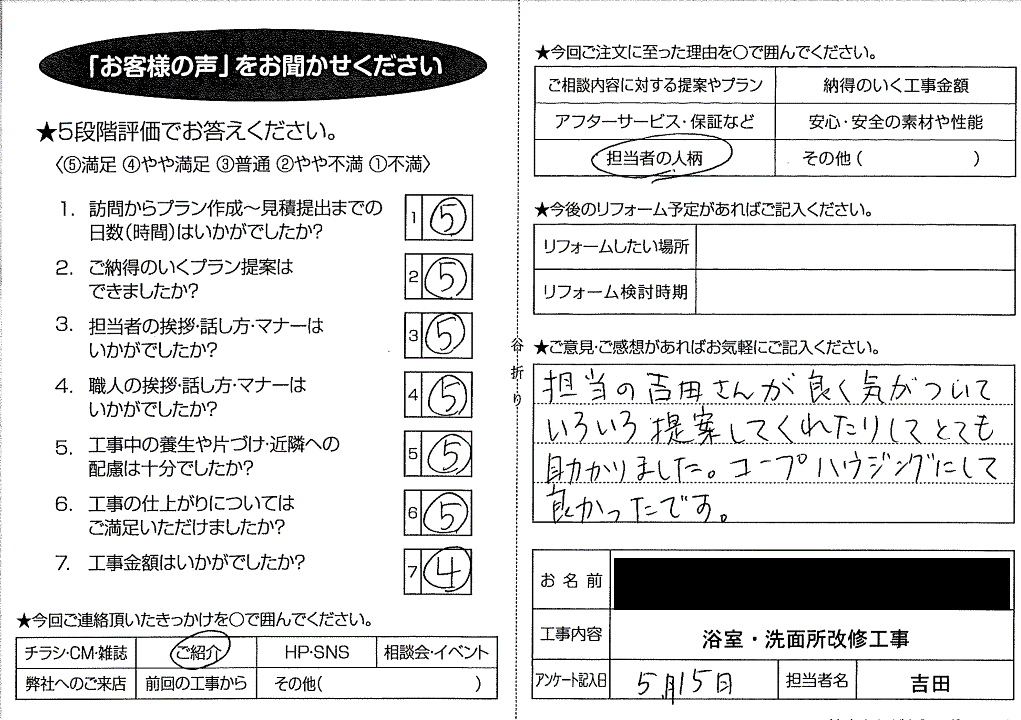 「お客様の声」をお聞かせください
★5段階評価でお答えください。
〈⑤満足 ④やや満足 ③普通 ②やや不満 ①不満〉
1. 訪問からプラン作成〜見積提出までの
日数(時間)はいかがでしたか?
1 ⑤
2. ご納得のいくプラン提案は
できましたか?
2 ⑤
3. 担当者の挨拶・話し方・マナーは
いかがでしたか?
3 ⑤
4. 職人の挨拶・話し方・マナーは
いかがでしたか?
4 ⑤
5. 工事中の養生や片づけ・近隣への
配慮は十分でしたか?
5 ⑤
6. 工事の仕上がりについては
ご満足いただけましたか?
6 ⑤
7. 工事金額はいかがでしたか?
7 ④
★今回ご連絡頂いたきっかけを〇で囲んでください。
チラシ・CM・雑誌 ご紹介 HP・SNS 相談会・イベント
弊社へのご来店 前回の工事から その他( )
谷折り
★今回ご注文に至った理由を〇で囲んでください。
ご相談内容に対する提案やプラン 納得のいく工事金額
アフターサービス・保証など 安心・安全の素材や性能
担当者の人柄 その他( )
★今後のリフォーム予定があればご記入ください。
リフォームしたい場所
リフォーム検討時期
★ご意見・ご感想があればお気軽にご記入ください。
担当の吉田さんが良く気がついて
いろいろ提案してくれたりしてとても
助かりました。コープハウジングにして
良かったです。
お名前
工事内容 浴室・洗面所改修工事
アンケート記入日 5月15日 担当者名 吉田